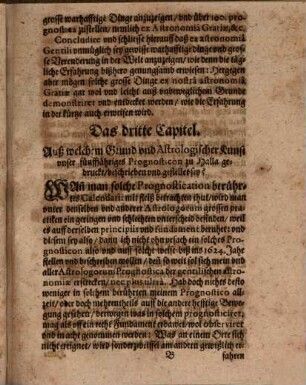 grosse warhafftige Dinge anzuzeigen / und uber 100. pro-
gnostica zustellen / nemlich ex Astronomia Gratiæ, &c.
Concludire und schliesse hierauß daß ex astronomia
Gentili unmüglich sey gewisse warhafftige dinge und gros-
se Verenderung in der Welt anzuzeigen / wie denn die täg-
liche Erfahrung bißhero genungsamb erwiesen: Hergegen
aber mögen solche grosse Dinge ex nostrâ astronomiâ
Gratiæ gar wol und leicht auß unbeweglichem Grunde
demonstriret und entdecket werden / wie die Erfahrung
in der kürtze auch erweisen wird.
Das dritte Capitel.
Auß welchem Grund und Astrologischer Kunst
unser fünffjähriges Prognosticon zu Halla ge-
druckt / beschrieben und gestellet sey?
WAñ man solche Prognostication berühr-
tes Calendarii mit fleiß betrachten thut / wird man
unter denselben und anderer Astrologorum grossen pra-
cticken ein geringen und schlechten unterscheid befinden / weil
es auff derselben principiis und fundament beruhet: und
diesem sey also / dann ich nicht ohn ursach ein solches Pro-
gnosticon also und auff solche weise biß ins 1624. Jahr
stellen und beschreiben wollen / denn so weit sol sich mein und
aller Astrologorum Prognostica der gentilischen astro-
nomiæ erstrecken / nec plus ultrà. Hab doch nichts desto
weniger in solchem berührten meinem Prognostico all-
zeit / oder doch mehrentheils auff die andere hefftige Bewe-
gung gesehen / derwegen was in solchem prognosticiret,
mag als auff ein recht Fundament erbawet wol observiret
und in acht genommen werden: Was an einem Orte sich
nicht ereignet / wird sonder zweiffel am andern gewißlich er-
B
fahren